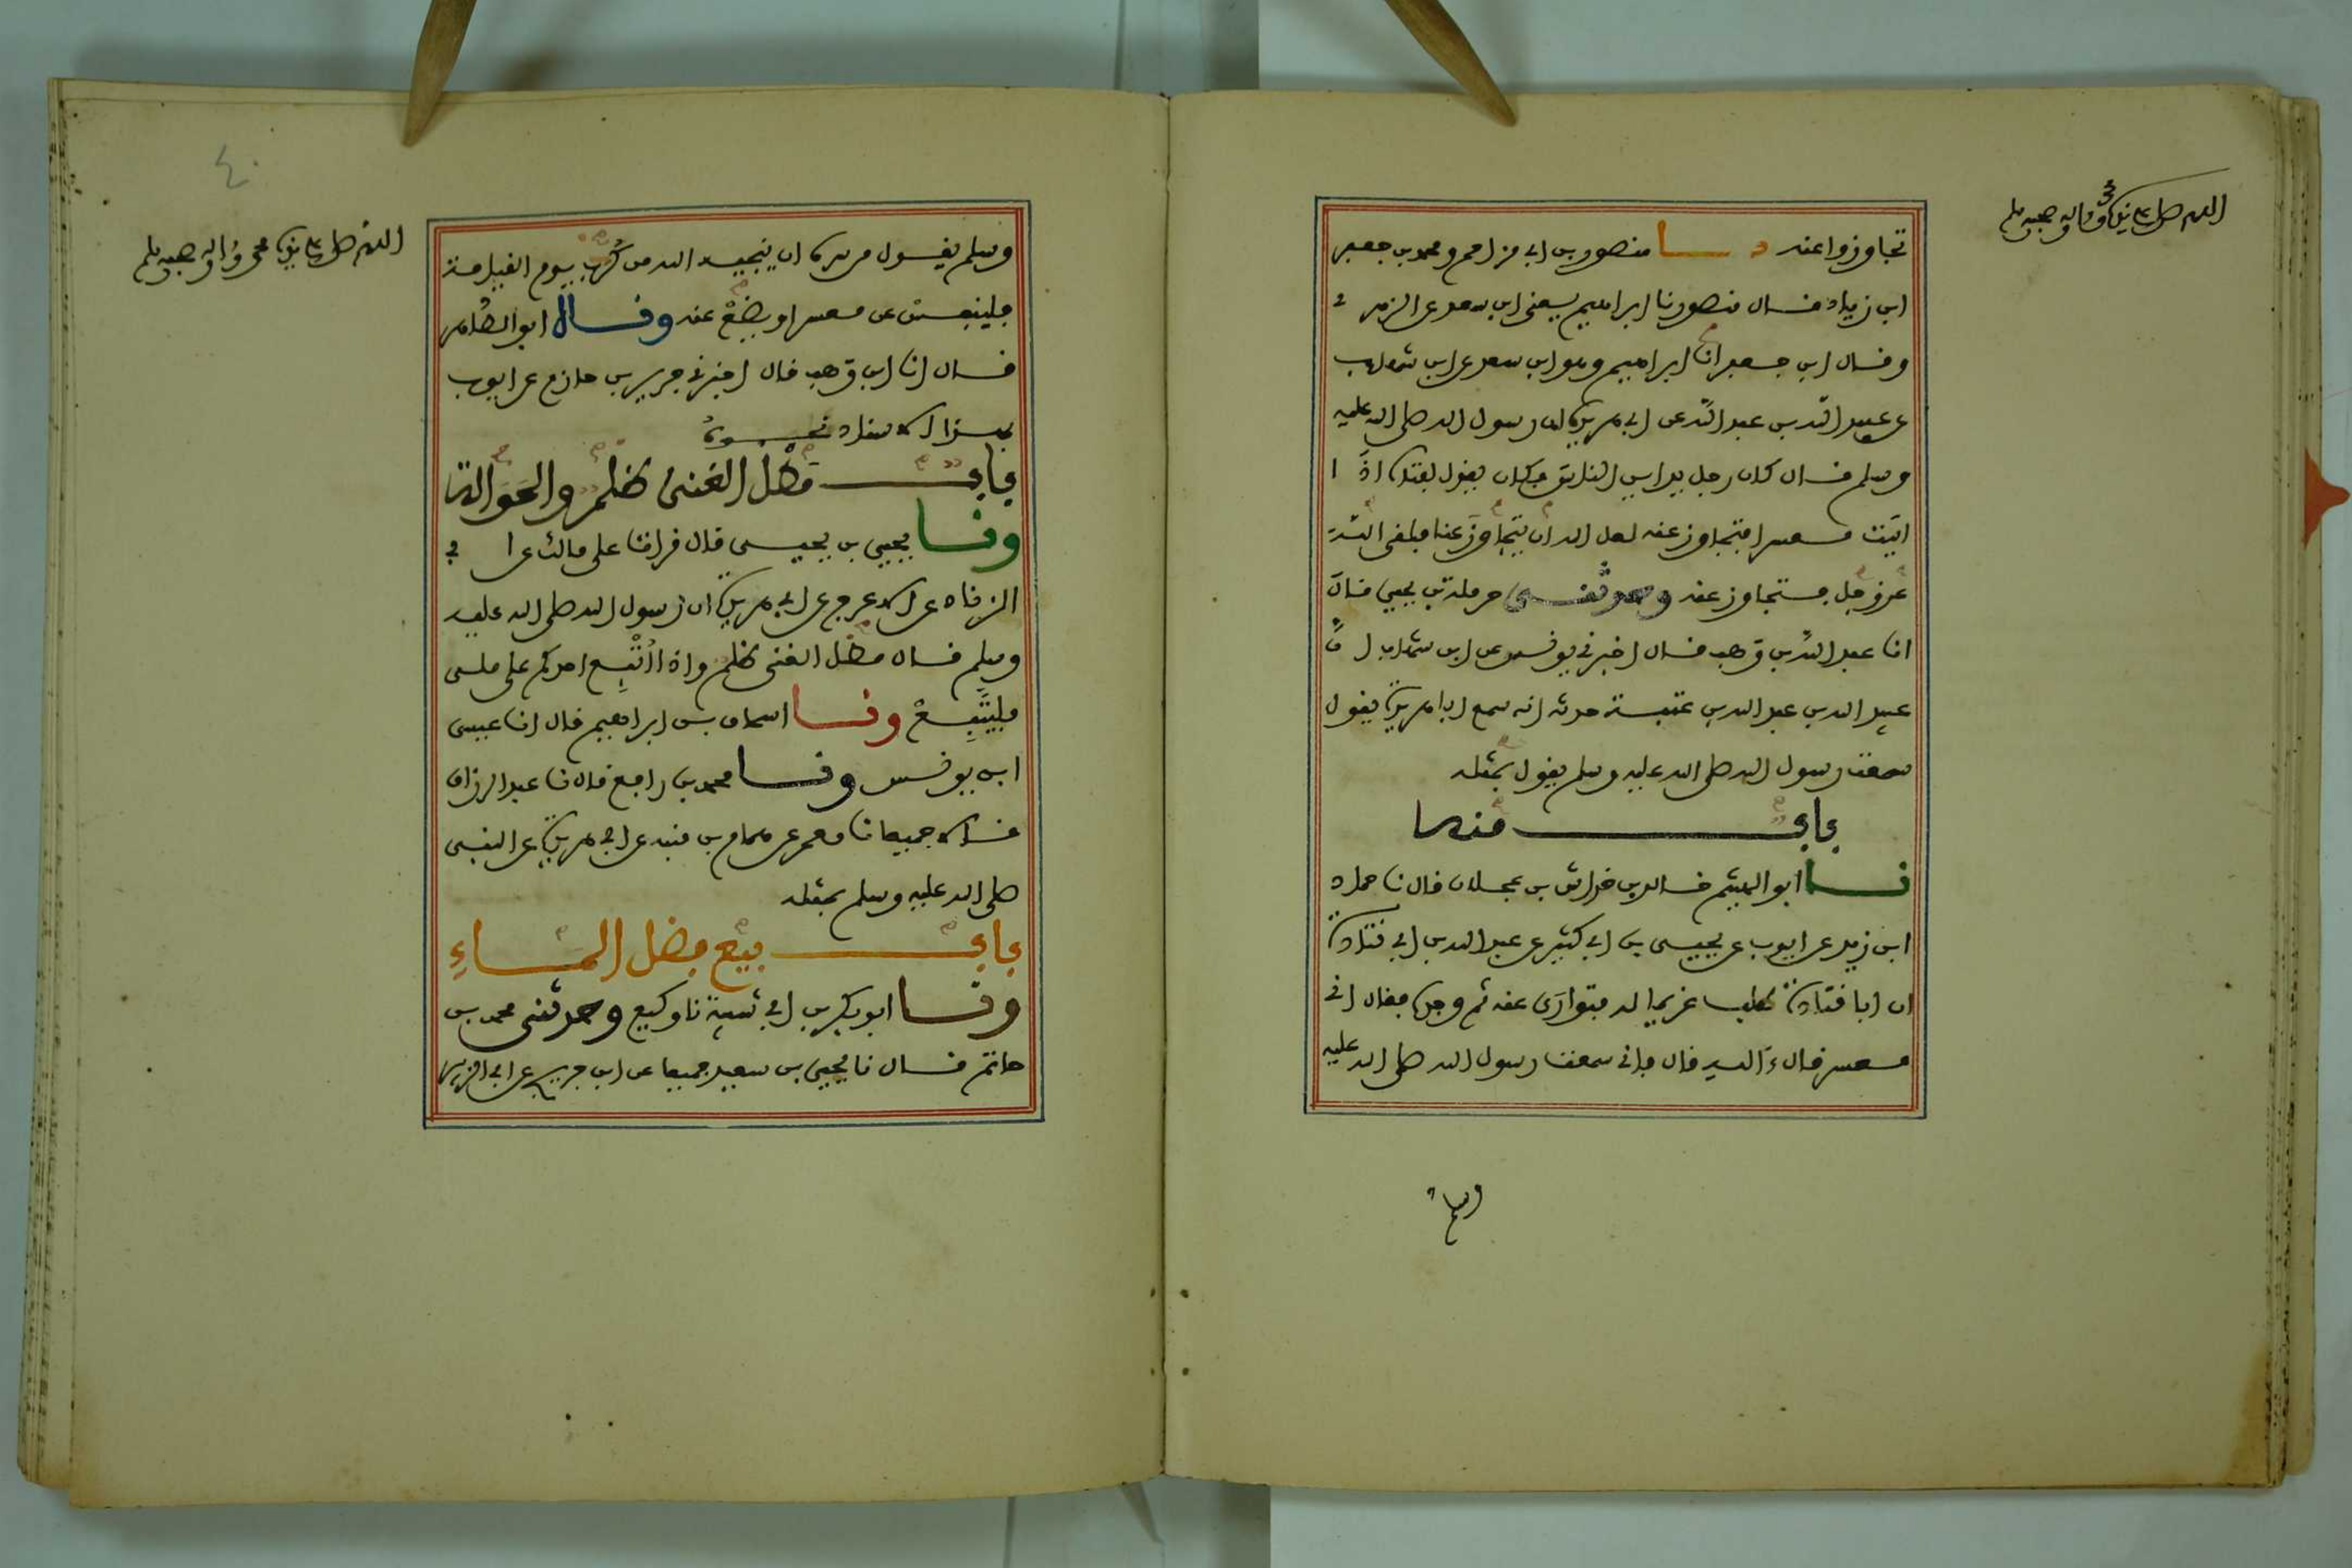 اللهم صل على نبينا محمد وآله وصحبه وسلم
تجاوزوا عنه نا منصور بن ابي مزاحم ومحمد بن جعفر
ابن زياد قال منصور نا ابراهيم يعني ابن سعد عن الزهري
وقال ابن جعفر انا ابراهيم وهو ابن سعد عن ابن شهاب
عن عبيد الله بن عبد الله عن ابي هريرة ان رسول الله صلى الله عليه
وسلم قال كان رجل يداين الناس فكان يقول لفتاه اذا
اتيت معسرا فتجاوز عنه لعل الله ان يتجاوز عنا فلقي الله
عز وجل فتجاوز عنه وحدثني حرملة بن يحيى قال
انا عبد الله بن وهب قال اخبرني يونس عن ابن شهاب ان
عبيد الله بن عبد الله بن عتبة حدثه انه سمع ابا هريرة يقول
سمعت رسول الله صلى الله عليه وسلم يقول بمثله
باب منه
نا ابو الهيثم خالد بن خداش بن عجلان قال نا حماد
ابن زيد عن ايوب عن يحيى بن ابي كثير عن عبد الله بن ابي قتادة
ان ابا قتادة طلب غريما له فتوارى عنه ثم وجده فقال اني
معسر قال ءالله قال فاني سمعت رسول الله صلى الله عليه
وسلم
٤٠
اللهم صل على نبينا محمد وآله وصحبه وسلم
وسلم يقول من سره ان ينجيه الله من كرب يوم القيامة
فلينفس عن معسر او يضع عنه وقال ابو الطاهر
قال انا ابن وهب قال اخبرني جرير بن حازم عن ايوب
بهذا الاسناد نحوه
باب مطل الغني ظلم والحوالة
ونا يحيى بن يحيى قال قرات على مالك عن ابي
الزناد عن الاعرج عن ابي هريرة ان رسول الله صلى الله عليه
وسلم قال مطل الغني ظلم واذا اتبع احدكم على ملي
فليتبع ونا اسحاق بن ابراهيم قال انا عيسى
ابن يونس ونا محمد بن رافع قال نا عبد الرزاق
قالا جميعا نا معمر عن همام بن منبه عن ابي هريرة عن النبي
صلى الله عليه وسلم بمثله
باب بيع فضل الماء
ونا ابو بكر بن ابي شيبة نا وكيع وحدثني محمد بن
حاتم قال نا يحيى بن سعيد جميعا عن ابن جريج عن ابي الزبير